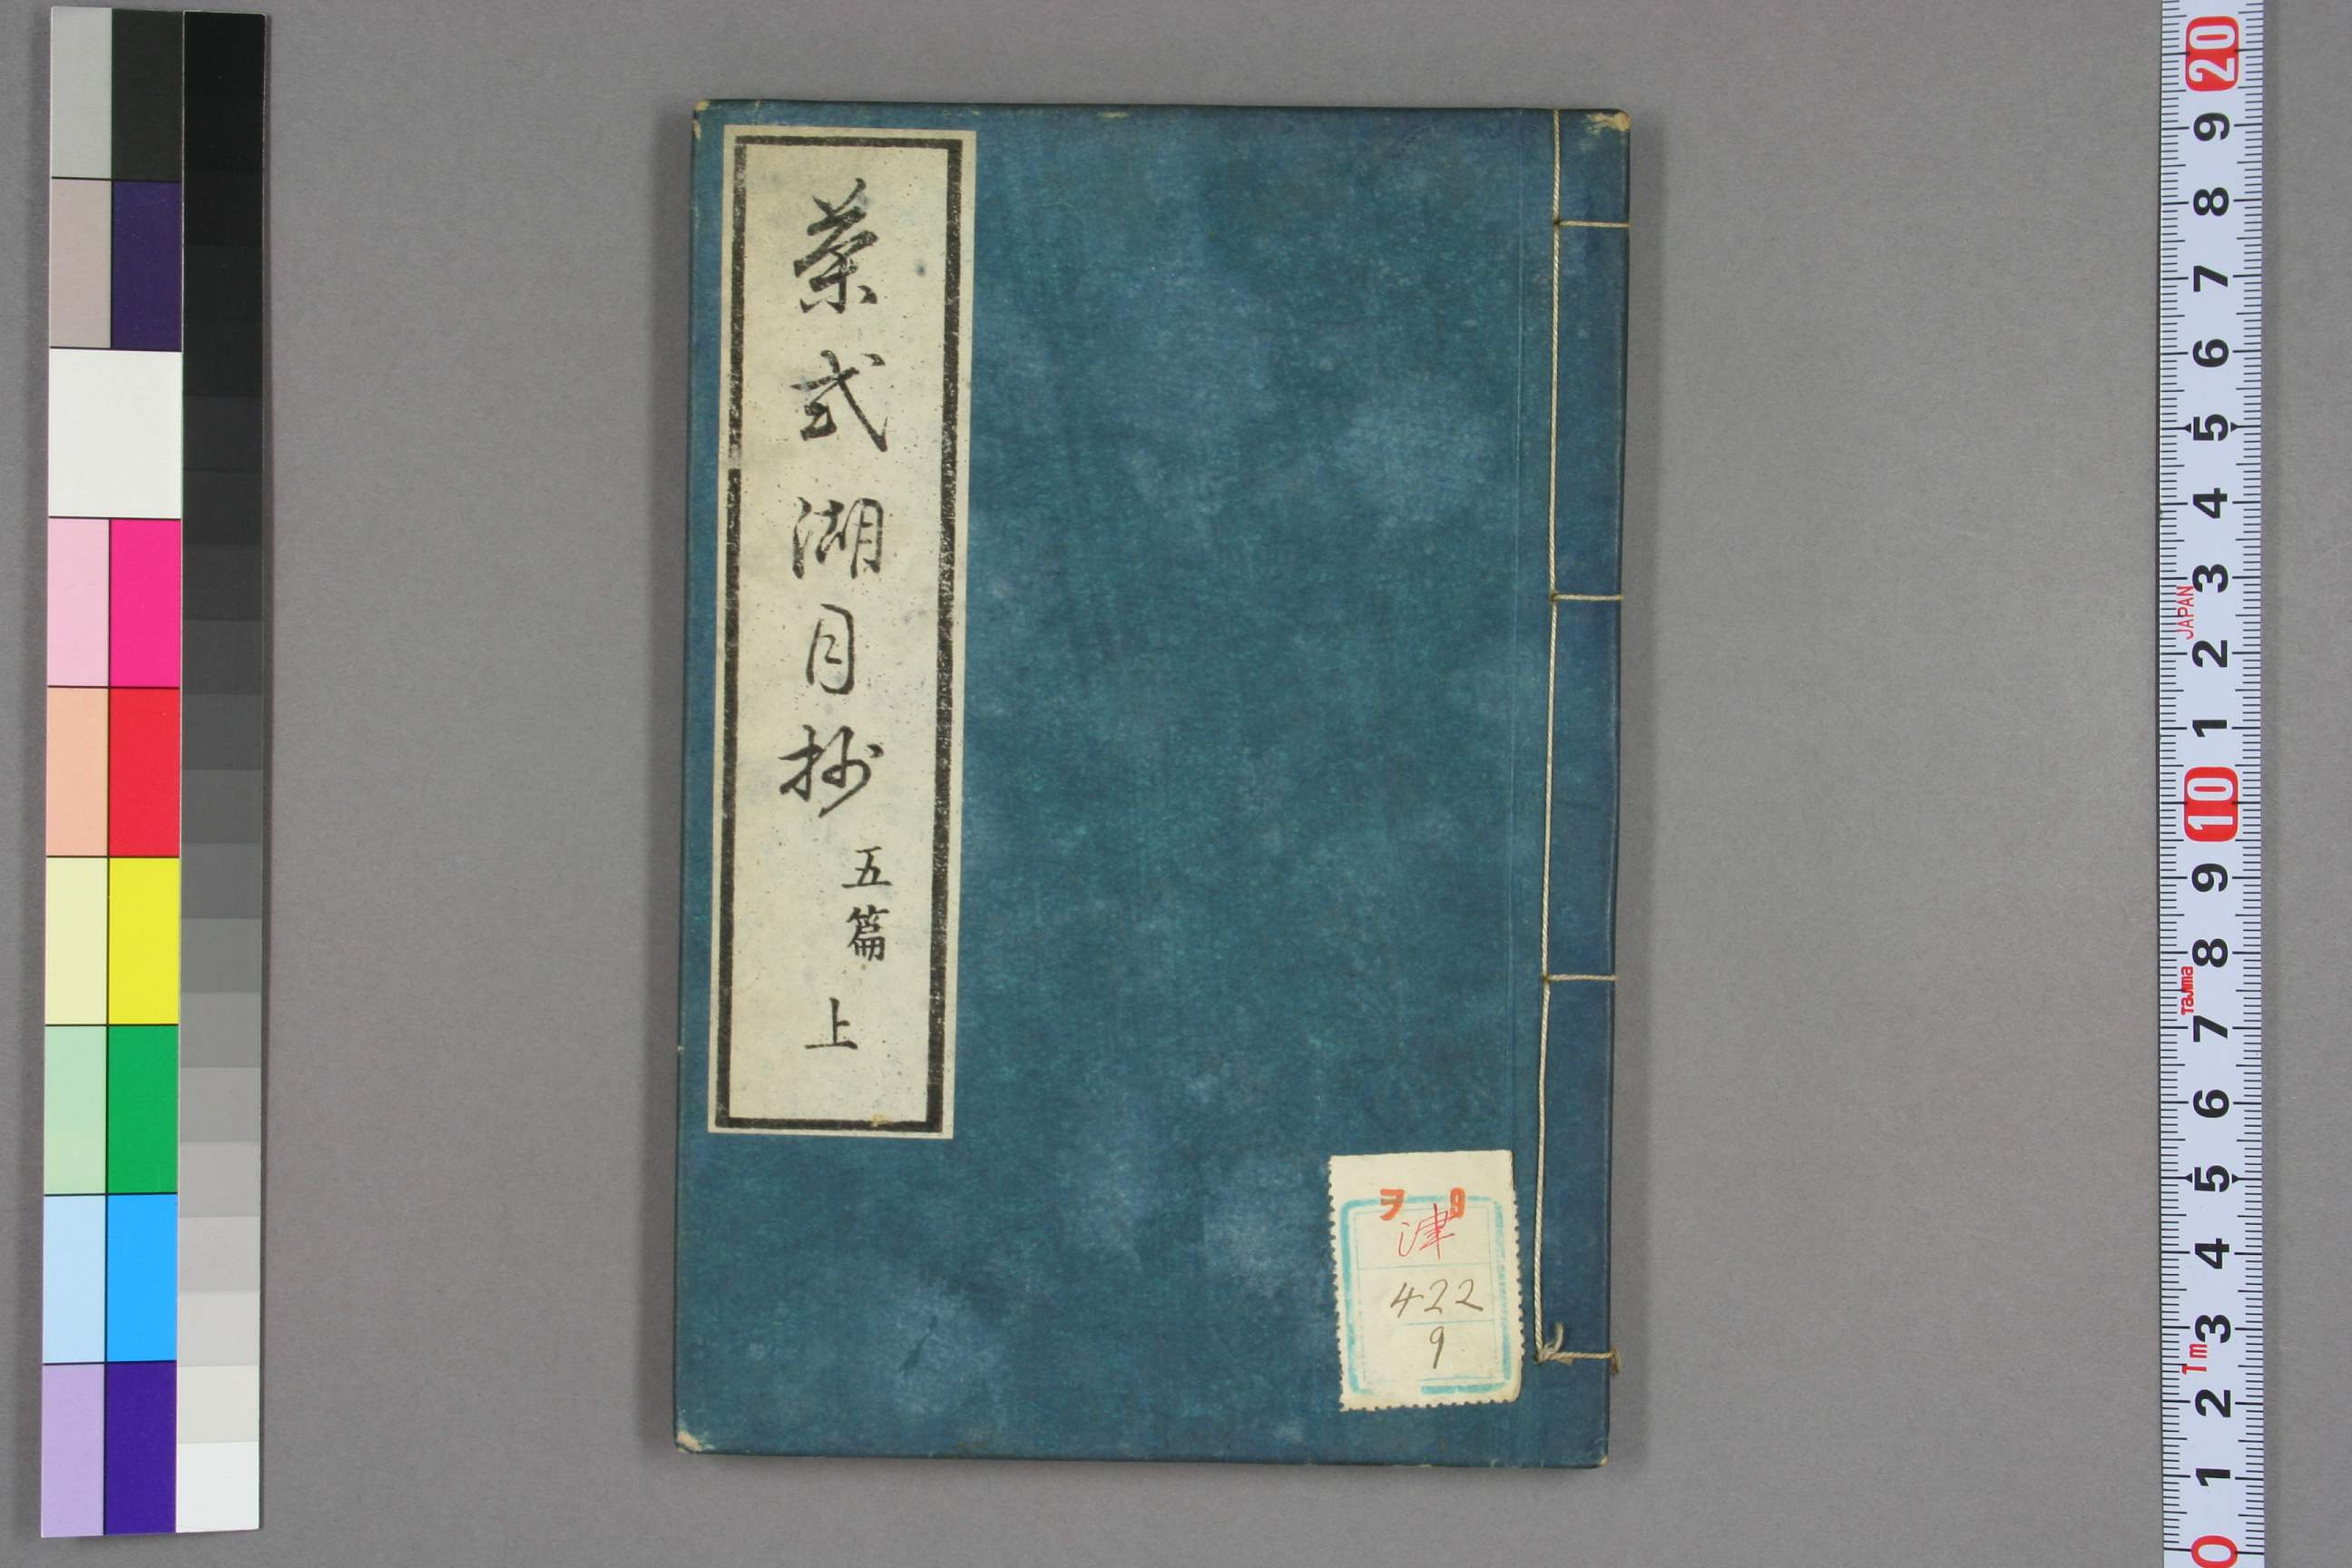 茶式湖月抄 五篇 上
ヲ 9
津
422
9
20
9
8
7
6
5
4
3
JAPAN
2
1
10
9
8
Tajima
7
6
5
4
3
1m
2
1
0